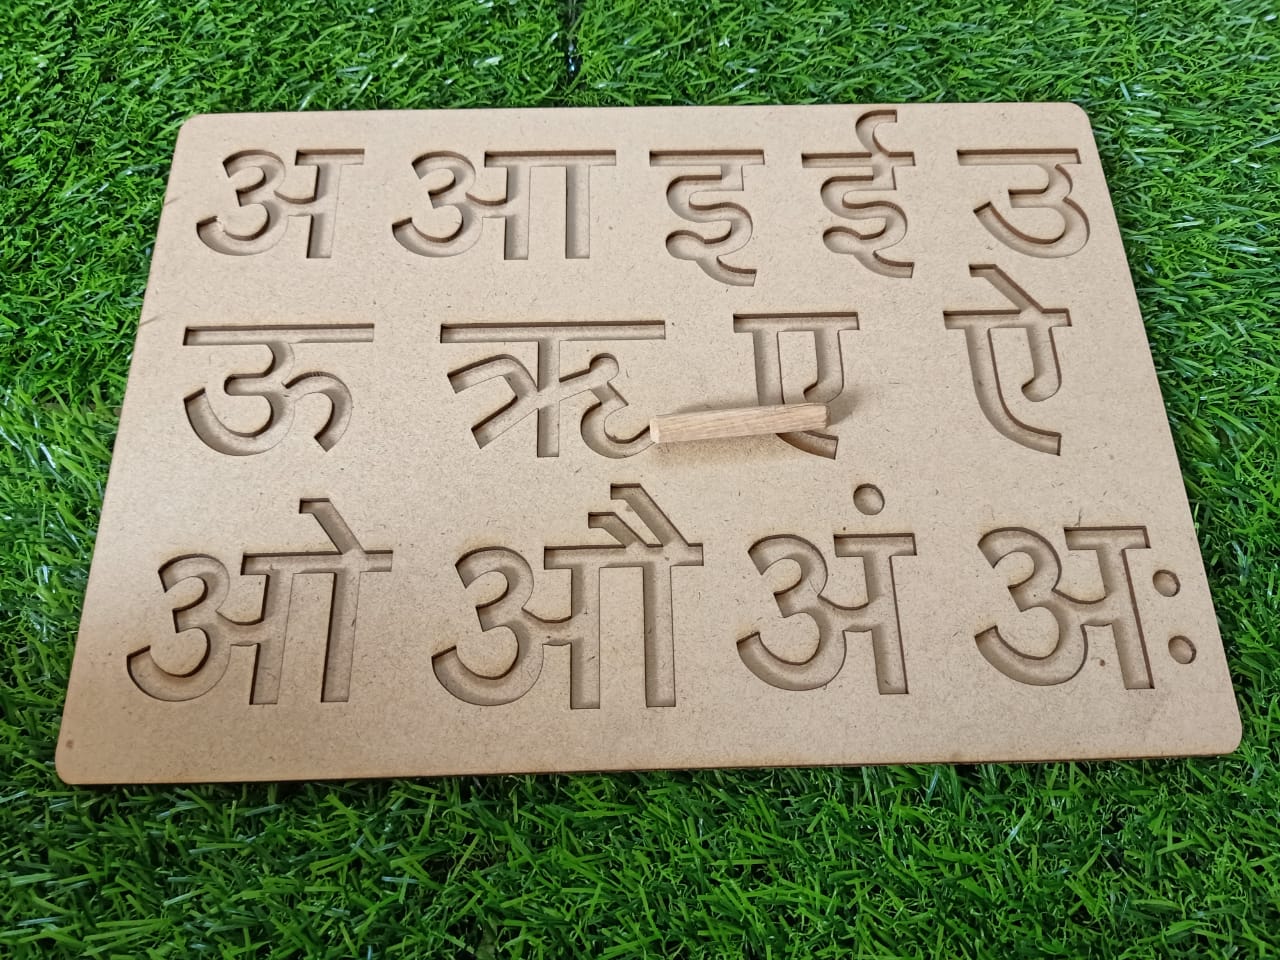 अ आ इ ई उ
ऊ ऋ ए ऐ
ओ औ अं अः